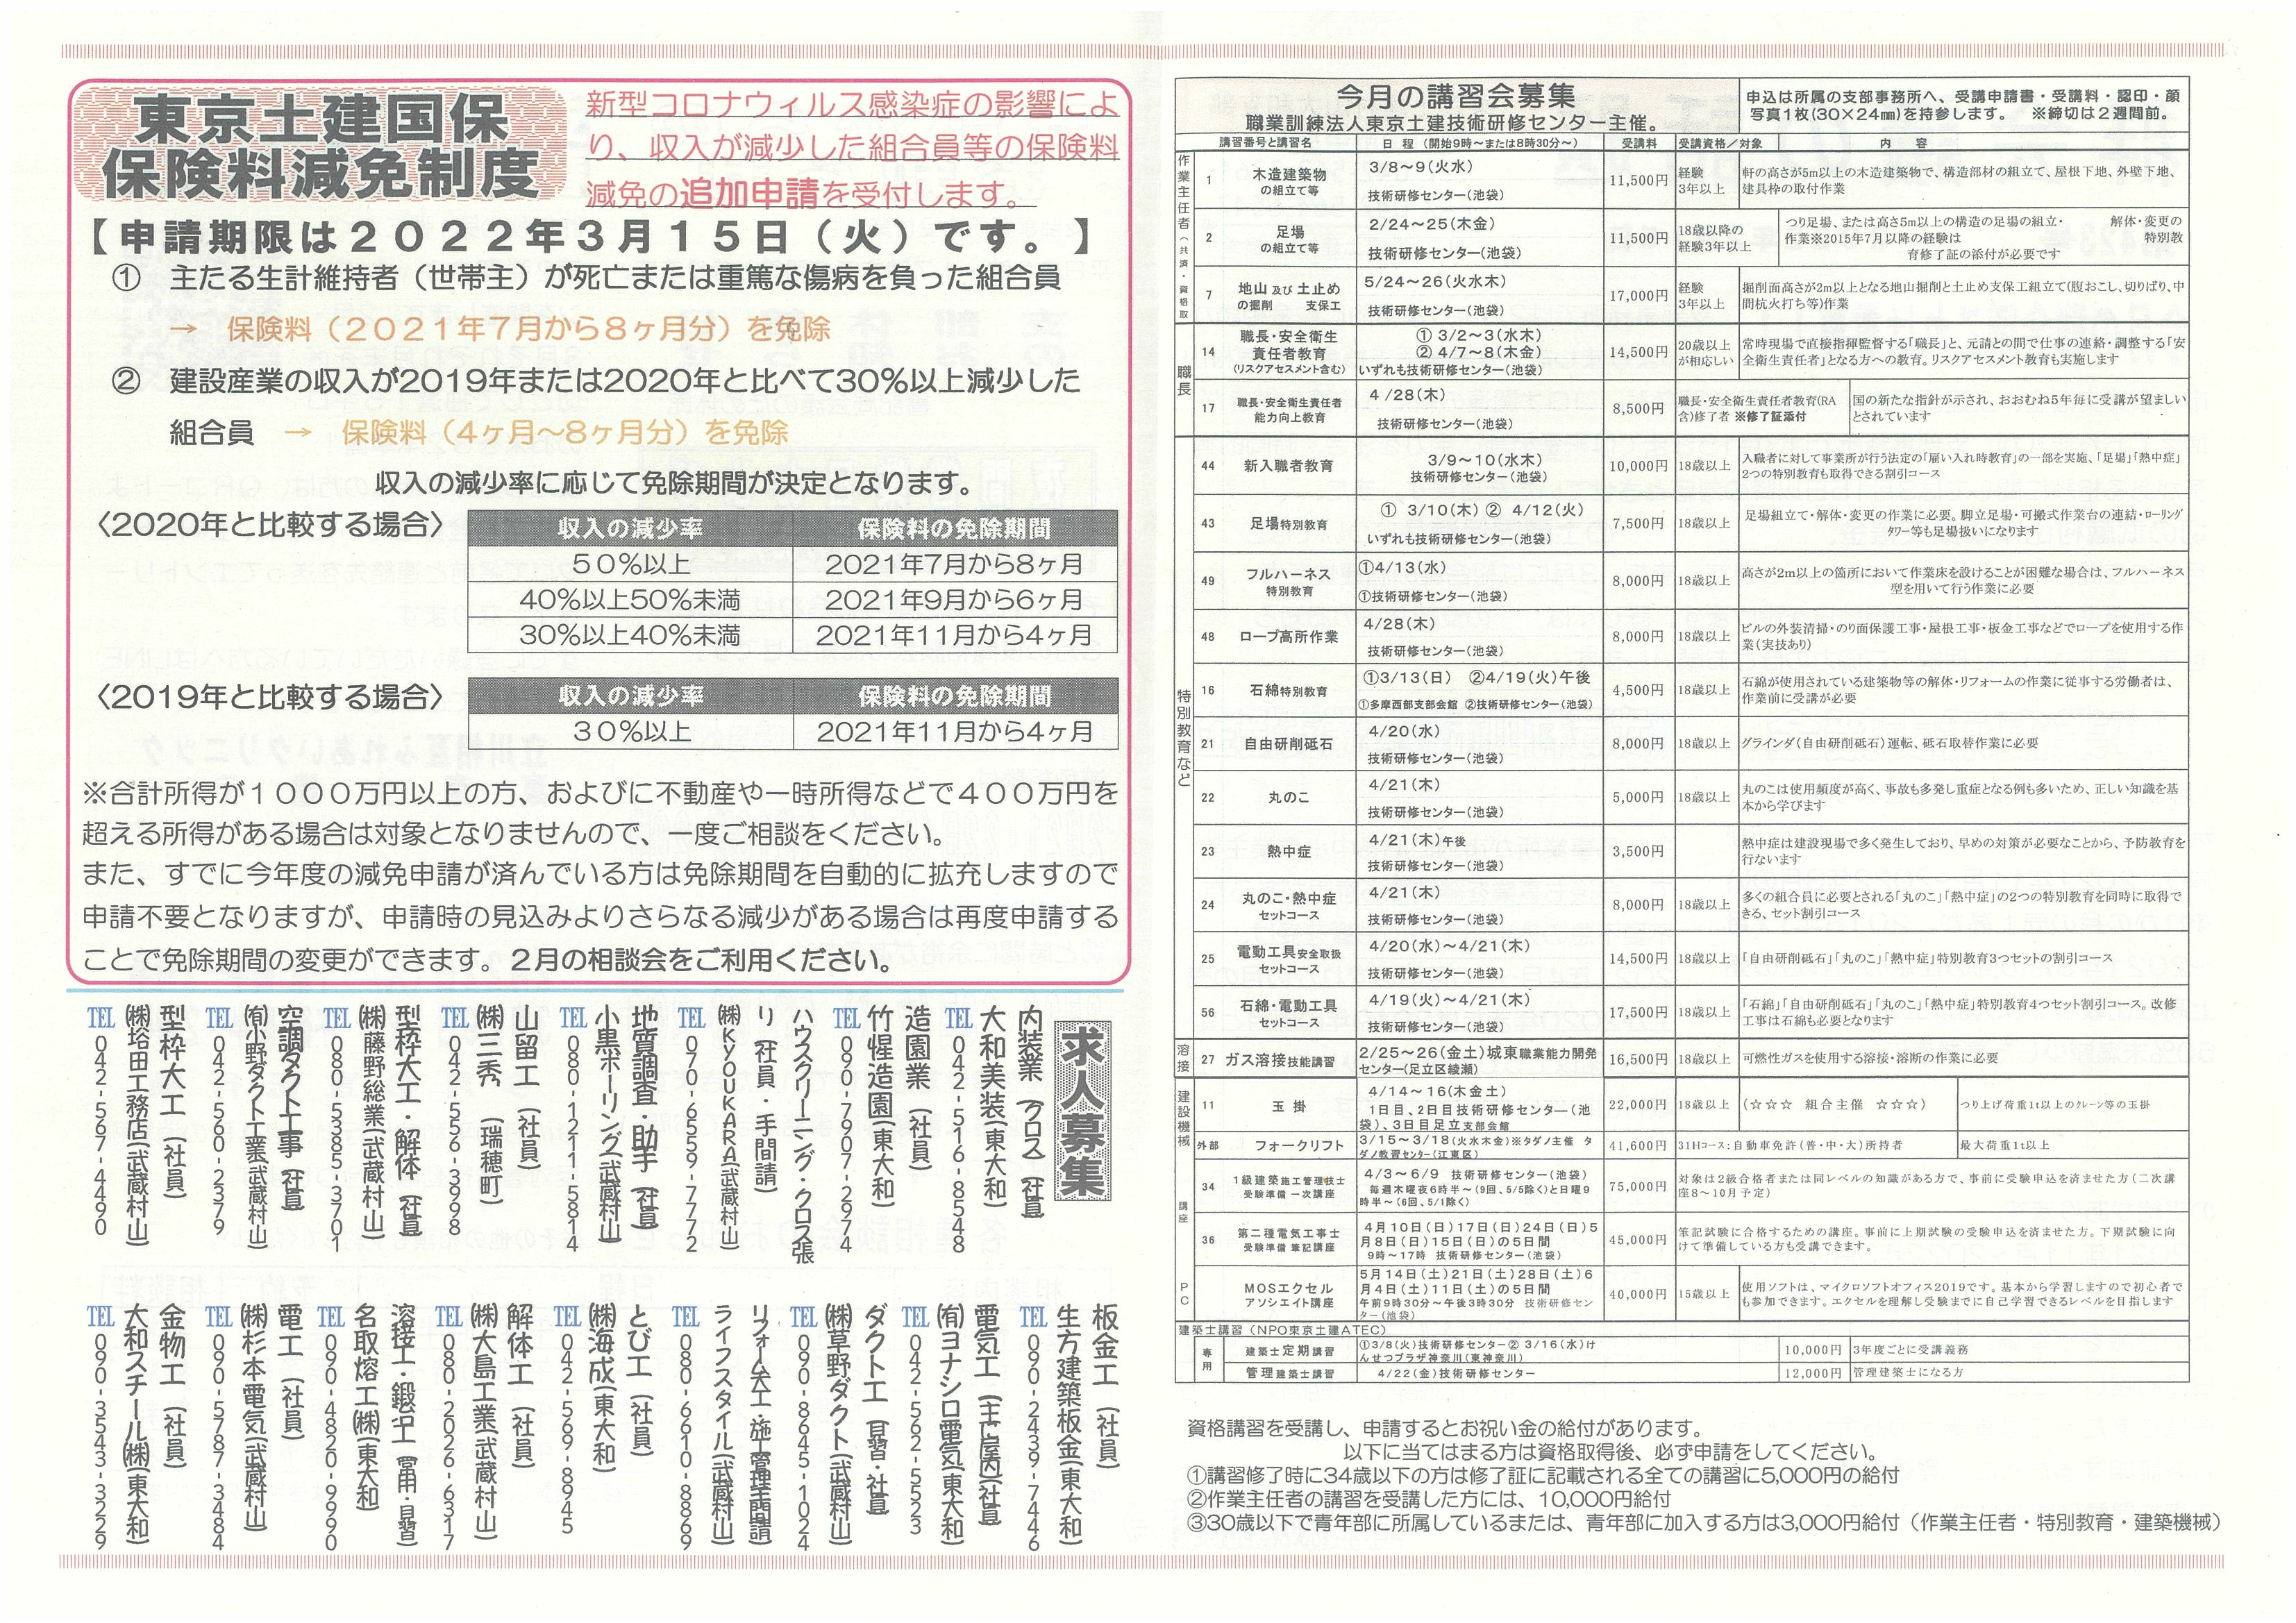 東京土建国保
保険料減免制度
新型コロナウィルス感染症の影響によ
り、収入が減少した組合員等の保険料
減免の追加申請を受付します。
【申請期限は２０２２年３月１５日（火）です。】
① 主たる生計維持者（世帯主）が死亡または重篤な傷病を負った組合員
→ 保険料（２０２１年７月から８ヶ月分）を免除
② 建設産業の収入が2019年または2020年と比べて30％以上減少した
組合員 → 保険料（４ヶ月～８ヶ月分）を免除
収入の減少率に応じて免除期間が決定となります。
〈2020年と比較する場合〉
収入の減少率 保険料の免除期間
５０％以上 2021年7月から8ヶ月
40％以上50％未満 2021年9月から6ヶ月
30％以上40％未満 2021年11月から4ヶ月
〈2019年と比較する場合〉
収入の減少率 保険料の免除期間
３０％以上 2021年11月から4ヶ月
※合計所得が１０００万円以上の方、およびに不動産や一時所得などで４００万円を
超える所得がある場合は対象となりませんので、一度ご相談をください。
また、すでに今年度の減免申請が済んでいる方は免除期間を自動的に拡充しますので
申請不要となりますが、申請時の見込みよりさらなる減少がある場合は再度申請する
ことで免除期間の変更ができます。２月の相談会をご利用ください。
求人募集
内装業（クロス）（社員）
大和美装（東大和）
TEL 042-516-8548
造園業（社員）
竹惺造園（東大和）
TEL 090-7907-2974
ハウスクリーニング・クロス張
り（社員・手間請）
㈱KYOUKARA（武蔵村山）
TEL 070-6559-7772
地質調査・助手（社員）
小黒ボーリング（武蔵村山）
TEL 080-1211-5814
山留工（社員）
㈱三秀（瑞穂町）
TEL 042-556-3998
型枠大工・解体（社員）
㈱藤野総業（武蔵村山）
TEL 080-5385-3701
空調ダクト工事（社員）
㈲小野ダクト工業（武蔵村山）
TEL 042-560-2379
型枠大工（社員）
㈱塔田工務店（武蔵村山）
TEL 042-567-4490
板金工（社員）
生方建築板金（東大和）
TEL 090-2439-7446
電気工（主に屋内）（社員）
㈲ヨナシロ電気（東大和）
TEL 042-562-5523
ダクト工（見習・社員）
㈱草野ダクト（武蔵村山）
TEL 090-8645-1024
リフォーム大工・施工管理（手間請）
ライフスタイル（武蔵村山）
TEL 080-6610-8869
とび工（社員）
㈱海成（東大和）
TEL 042-569-8945
解体工（社員）
㈱大島工業（武蔵村山）
TEL 080-2026-6317
溶接工・鍛冶工（常用・見習）
名取熔工㈱（東大和）
TEL 090-4820-9990
電工（社員）
㈱杉本電気（武蔵村山）
TEL 090-5787-3484
金物工（社員）
大和スチール㈱（東大和）
TEL 090-3543-3229
今月の講習会募集
職業訓練法人東京土建技術研修センター主催。
申込は所属の支部事務所へ、受講申請書・受講料・認印・顔
写真1枚(30×24㎜)を持参します。 ※締切は２週間前。
講習番号と講習名 日 程 （開始9時～または8時30分～） 受講料 受講資格／対象 内 容
作業主任者（共済・資格取
1 木造建築物 の組立て等 3/8～9(火水) 技術研修センター(池袋) 11,500円 経験 3年以上 軒の高さが5m以上の木造建築物で、構造部材の組立て、屋根下地、外壁下地、
建具枠の取付作業
2 足場 の組立て等 2/24～25(木金) 技術研修センター(池袋) 11,500円 18歳以降の 経験3年以上 つり足場、または高さ5m以上の構造の足場の組立・ 解体・変更の
作業※2015年7月以降の経験は 特別教
育修了証の添付が必要です
7 地山 及び 土止め の掘削 支保工 5/24～26(火水木) 技術研修センター(池袋) 17,000円 経験 3年以上 掘削面高さが2m以上となる地山掘削と土止め支保工組立て(腹おこし、切りばり、中
間杭火打ち等)作業
職長
14 職長・安全衛生 責任者教育 (リスクアセスメント含む) ① 3/2～3(水木) ② 4/7～8(木金) いずれも技術研修センター(池袋) 14,500円 20歳以上 が相応しい 常時現場で直接指揮監督する「職長」と、元請との間で仕事の連絡・調整する「安
全衛生責任者」となる方への教育。リスクアセスメント教育も実施します
17 職長・安全衛生責任者 能力向上教育 4 /28(木) 技術研修センター(池袋) 8,500円 職長・安全衛生責任者教育(RA 含)修了者 ※修了証添付 国の新たな指針が示され、おおむね5年毎に受講が望ましい
とされています
特別教育など
44 新入職者教育 3/9～10(水木) 技術研修センター(池袋) 10,000円 18歳以上 入職者に対して事業所が行う法定の「雇い入れ時教育」の一部を実施、「足場」「熱中症」
2つの特別教育も取得できる割引コース
43 足場特別教育 ① 3/10(木) ② 4/12(火) いずれも技術研修センター(池袋) 7,500円 18歳以上 足場組立て・解体・変更の作業に必要。脚立足場・可搬式作業台の連結・ローリング
タワー等も足場扱いになります
49 フルハーネス 特別教育 ①4/13(水) ①技術研修センター(池袋) 8,000円 18歳以上 高さが2m以上の箇所において作業床を設けることが困難な場合は、フルハーネス
型を用いて行う作業に必要
48 ロープ高所作業 4/28(木) 技術研修センター(池袋) 8,000円 18歳以上 ビルの外装清掃・のり面保護工事・屋根工事・板金工事などでロープを使用する作
業(実技あり)
16 石綿特別教育 ①3/13(日) ②4/19(火)午後 ①多摩西部支部会館 ②技術研修センター(池袋) 4,500円 18歳以上 石綿が使用されている建築物等の解体・リフォームの作業に従事する労働者は、
作業前に受講が必要
21 自由研削砥石 4/20(水) 技術研修センター(池袋) 8,000円 18歳以上 グラインダ(自由研削砥石)運転、砥石取替作業に必要
22 丸のこ 4/21(木) 技術研修センター(池袋) 5,000円 18歳以上 丸のこは使用頻度が高く、事故も多発し重症となる例も多いため、正しい知識を基
本から学びます
23 熱中症 4/21(木)午後 技術研修センター(池袋) 3,500円 熱中症は建設現場で多く発生しており、早めの対策が必要なことから、予防教育を
行ないます
24 丸のこ・熱中症 セットコース 4/21(木) 技術研修センター(池袋) 8,000円 18歳以上 多くの組合員に必要とされる「丸のこ」「熱中症」の2つの特別教育を同時に取得で
きる、セット割引コース
25 電動工具安全取扱 セットコース 4/20(水)～4/21(木) 技術研修センター(池袋) 14,500円 18歳以上 「自由研削砥石」「丸のこ」「熱中症」特別教育3つセットの割引コース
56 石綿・電動工具 セットコース 4/19(火)～4/21(木) 技術研修センター(池袋) 17,500円 18歳以上 「石綿」「自由研削砥石」「丸のこ」「熱中症」特別教育4つセット割引コース。改修
工事は石綿も必要となります
溶接
27 ガス溶接技能講習 2/25～26(金土)城東職業能力開発 センター(足立区綾瀬) 16,500円 18歳以上 可燃性ガスを使用する溶接・溶断の作業に必要
建設機械
11 玉 掛 4/14～16(木金土) 1日目、2日目技術研修センター(池 袋)、3日目足立支部会館 22,000円 18歳以上 (☆☆☆ 組合主催 ☆☆☆) つり上げ荷重1t以上のクレーン等の玉掛
外部 フォークリフト 3/15～3/18(火水木金)※タダノ主催 タ ダノ教習センター(江東区) 41,600円 31Hコース:自動車免許(普・中・大)所持者 最大荷重1t以上
講座
34 1級建築施工管理技士 受験準備 一次講座 4/3～6/9 技術研修センター(池袋) 毎週木曜夜6時半～(9回、5/5除く)と日曜9 時半～(6回、5/1除く) 75,000円 対象は2級合格者または同レベルの知識がある方で、事前に受験申込を済ませた方(二次講
座8～10月予定)
36 第二種電気工事士 受験準備 筆記講座 4月10日(日)17日(日)24日(日)5 月8日(日)15日(日)の5日間 9時～17時 技術研修センター(池袋) 45,000円 筆記試験に合格するための講座。事前に上期試験の受験申込を済ませた方。下期試験に向
けて準備している方も受講できます。
PC
MOSエクセル アソシエイト講座 5月14日(土)21日(土)28日(土)6 月4日(土)11日(土)の5日間 午前9時30分～午後3時30分 技術研修セン ター(池袋) 40,000円 15歳以上 使用ソフトは、マイクロソフトオフィス2019です。基本から学習しますので初心者で
も参加できます。エクセルを理解し受験までに自己学習できるレベルを目指します
建築士講習(NPO東京土建ATEC)
専用
建築士定期講習 ①3/8(火)技術研修センター② 3/16(水)け んせつプラザ神奈川(東神奈川) 10,000円 3年度ごとに受講義務
管理建築士講習 4/22(金)技術研修センター 12,000円 管理建築士になる方
資格講習を受講し、申請するとお祝い金の給付があります。
以下に当てはまる方は資格取得後、必ず申請をしてください。
①講習修了時に34歳以下の方は修了証に記載される全ての講習に5,000円の給付
②作業主任者の講習を受講した方には、10,000円給付
③30歳以下で青年部に所属しているまたは、青年部に加入する方は3,000円給付（作業主任者・特別教育・建築機械）